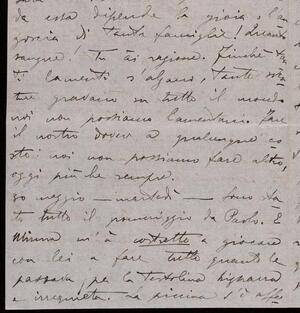 da essa dipende la gioia, l'an
goscia di tante famiglie! Quanto
sangue! Tu ài ragione. Finchè tan
ti lamenti s'alzano, tante
gravano su tutto il mondo
noi non possiamo lamentarci. Fare
il nostro dovere a qualunque co
sto: noi non possiamo fare altro,
oggi più che sempre.
30 maggio — martedì — Sono sta
ta tutto il pomeriggio da Paolo. E
Mimma m'à costretto a giocare
con lei a fare tutto quanto le
passava per la testolina bizzarra
e irrequieta. La piccina s'è affe